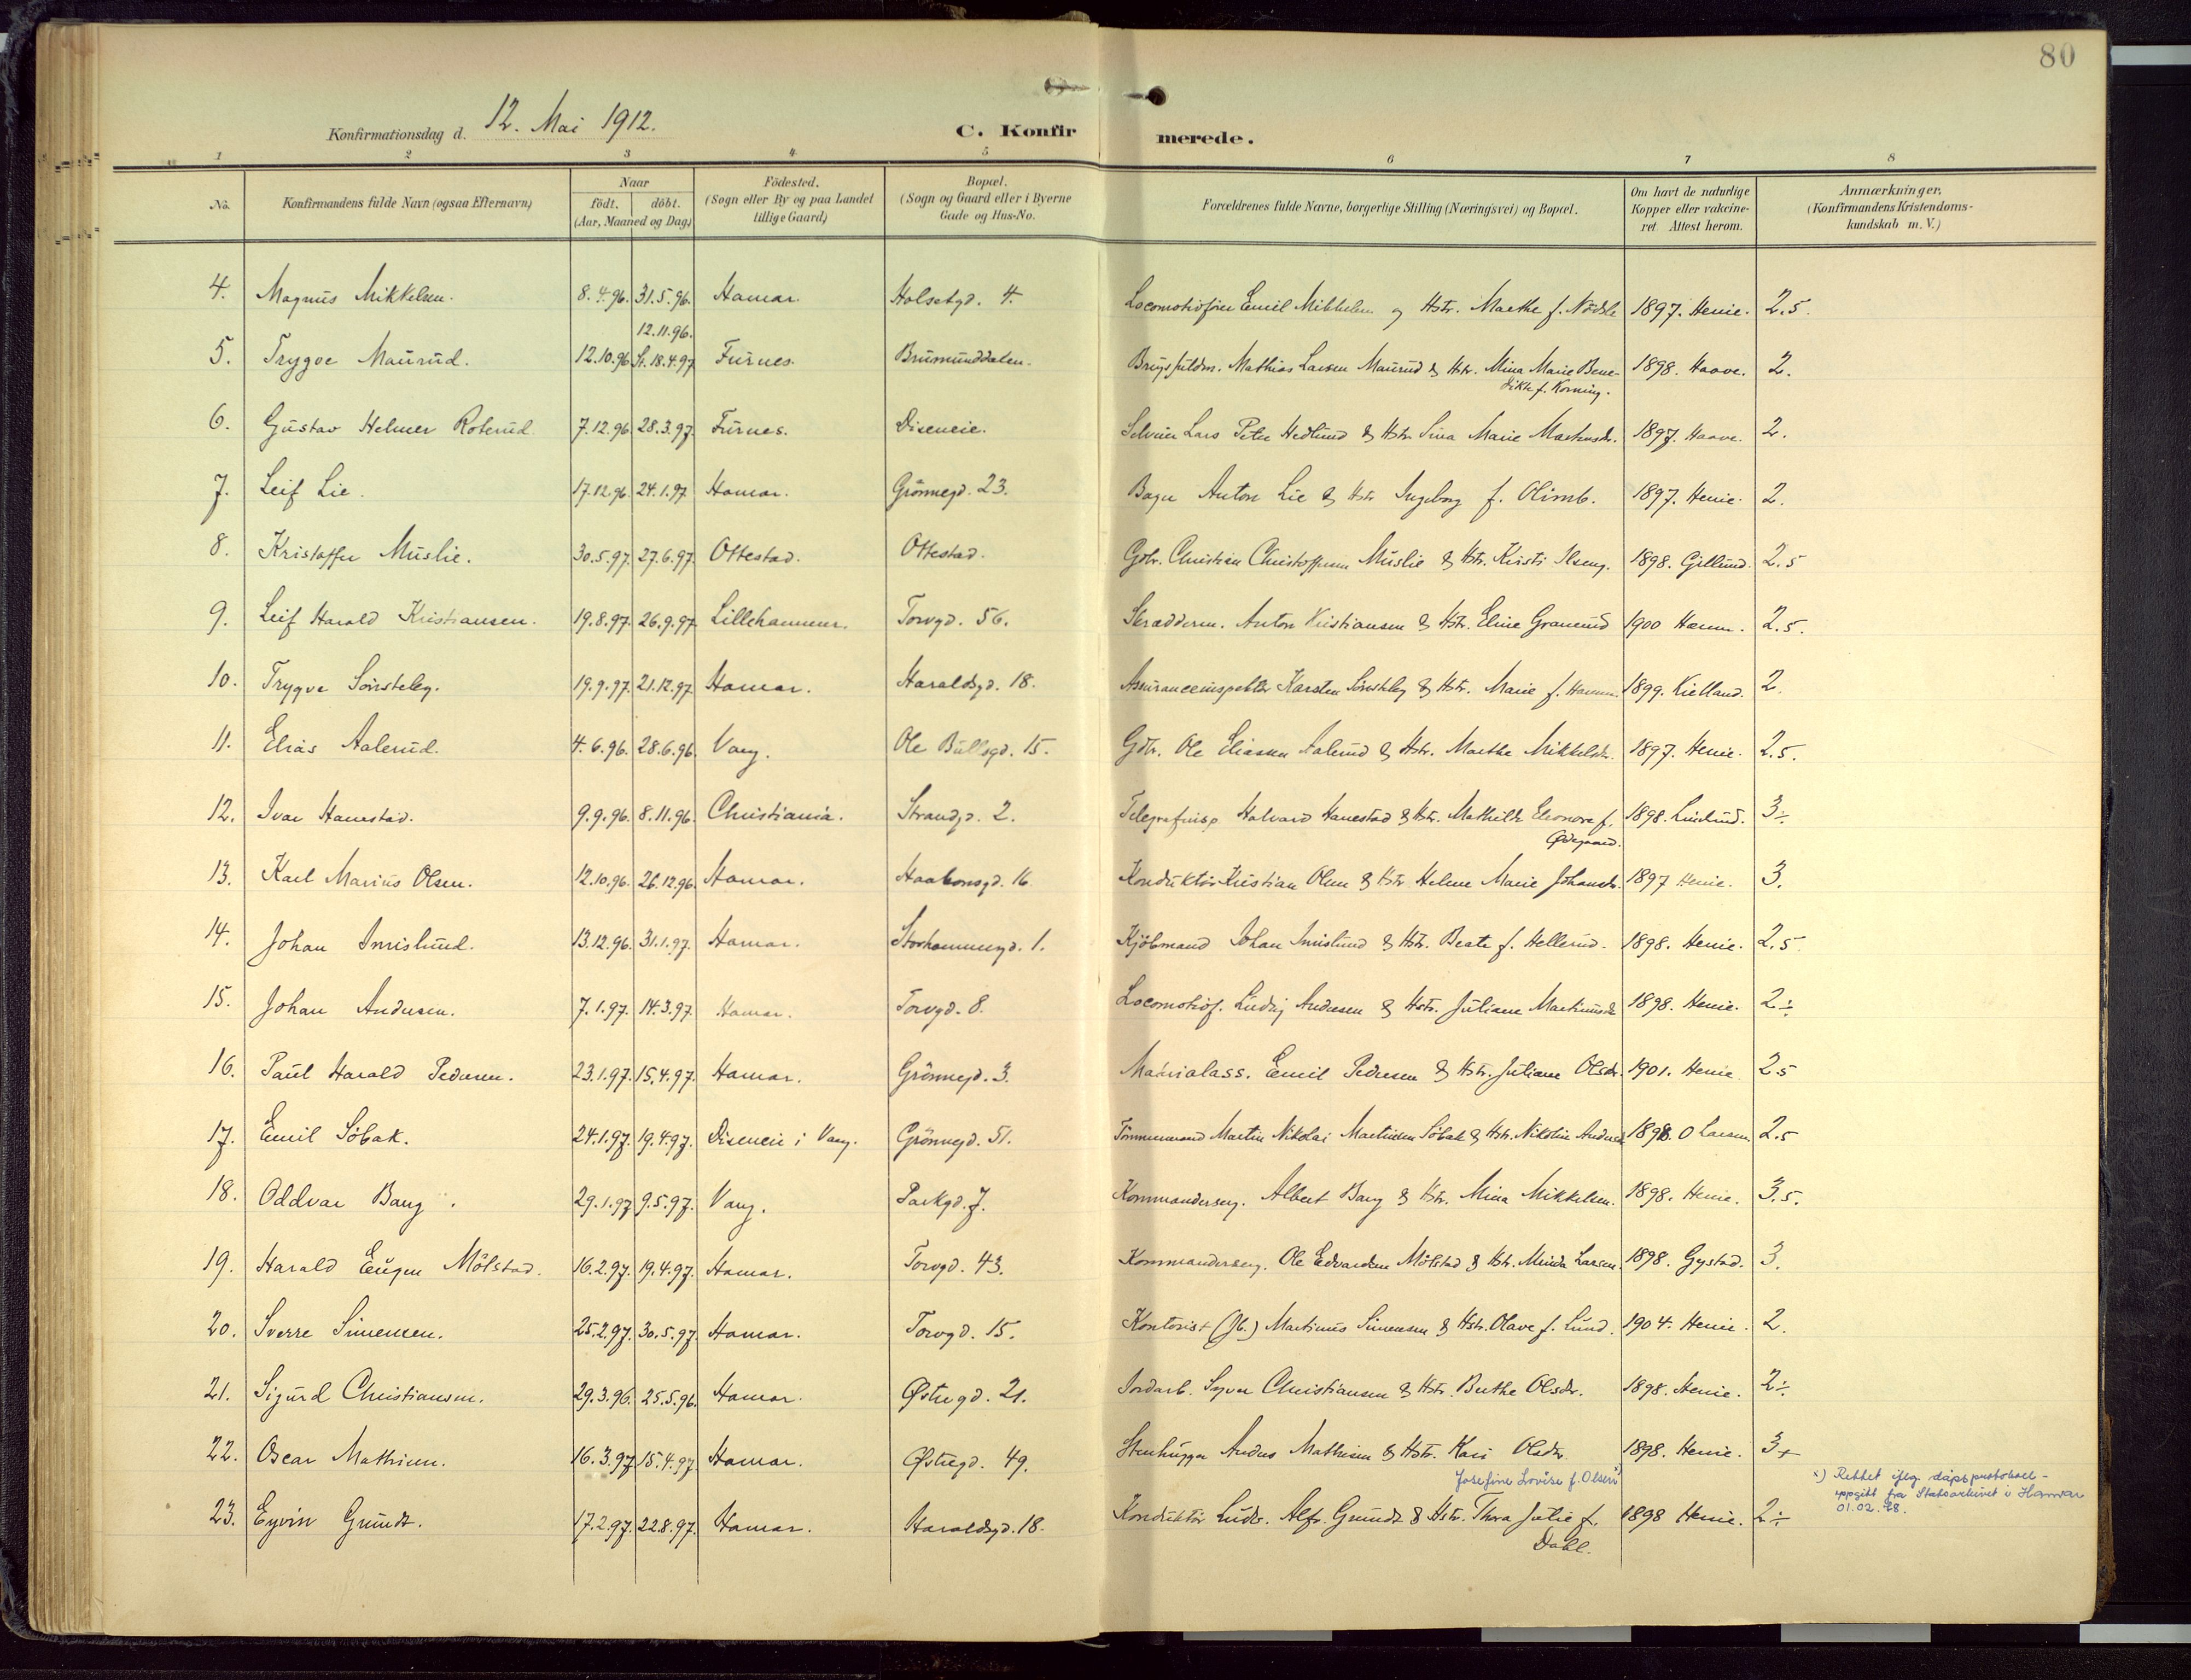 80
Konfirmationsdag d. 12. Mai 1912.
C. Konfirmerede.
1 2 3 4 5 6 7 8
No. Konfirmandens fulde Navn (ogsaa Efternavn) Naar født. døbt. (Aar, Maaned og Dag) Fødested. (Sogn eller By og paa Landet tillige Gaard) Bopæl. (Sogn og Gaard eller i Byerne Gade og Hus-No. Forældrenes fulde Navne, borgerlige Stilling (Næringsvei) og Bopæl. Om havt de naturlige Kopper eller vakcineret. Attest herom. Anmærkninger. (Konfirmandens Kristendomskundskab m. V.)
4. Magnus Mikkelsen. 8.4.96. 31.5.96. Hamar. Holsetgd. 4. Locomotivfører Emil Mikkelsen og Hstr. Marthe f. 1897. Henie. 2.5.
12.11.96.
5. Trygve Maurud. 12.10.96 St. 18.4.97 Furnes. Brumunddalen. Brugsfuldm. Mathias Larsen Maurud & Hstr. Mina Marie Bene- 1898. Haave. 2.
dikte f. Korning.
6. Gustav Helmer Roterud 7.12.96 28.3.97. Furnes. Diseneie. Selveier Lars Peter Hedlund & Hstr. Sina Marie 1897. Haave. 2.
7. Leif Lie. 17.12.96. 24.1.97 Hamar. Grønnegd. 23. Bager Anton Lie & Hstr Ingeborg f. Olimb. 1897. Henie. 2.
8. Kristoffer Muslie. 30.5.97. 27.6.97. Ottestad. Ottestad. Gdbr. Christian Christoffersen Muslie & Hstr. Kirsti Ilseng. 1898. Gillund. 2.5
9. Leif Harald Kristiansen. 19.8.97. 26.9.97 Lillehammer. Torvgd. 56. Skrædderm. Anton Kristiansen & Hstr. Eline Granerud 1900 2.5.
10. Trygve Sønsteby. 19.9.97. 21.12.97. Hamar. Haraldsgd. 18. Assuranceinspektør Karsten Sønsteby & Hstr. Marie f. 1899. Kielland. 2.
11. Elias Aalerud. 4.6.96. 28.6.96. Vang. Ole Bullsgd. 15. Gdbr. Ole Eliassen Aalerud & Hstr. Marthe Mikkelsdr. 1897. Henie. 2.5.
12. Ivar Hanestad. 9.9.96. 8.11.96. Christiania. Strandgd. 2. Telegrafinsp Halvard Hanestad & Hstr. Mathilde Eleonore f. 1898. 3÷
Ødegaard.
13. Karl Marius Olsen. 12.10.96. 26.12.96. Hamar. Haakonsgd. 16. Konduktør Kristian Olsen & Hstr Helene Marie Johansdr. 1897 Henie. 3.
14. Johan Imislund. 13.12.96. 31.1.97. Hamar. Storhammergd. 1. Kjøbmand Johan Imislund & Hstr. Beate f. Hellerud. 1898. Henie. 2.5
15. Johan Andersen. 7.1.97. 14.3.97. Hamar. Torvgd. 8. Locomotivf. Ludvig Andersen & Hstr. Juliane Martinusdr 1898. Henie. 2÷
16. Paul Harald Pedersen. 23.1.97. 15.4.97. Hamar. Grønnegd. 3. Emil Pedersen & Hstr. Juliane Olsdr. 1901. Henie 2.5
17. Emil Søbak. 24.1.97. 19.4.97. Diseneie i Vang. Grønnegd. 51. Tømmermand Martin Nikolai Martinsen Søbak & Hstr. Nikoline 1898. O Larsen 2.5
18. Oddvar Bang. 29.1.97 9.5.97. Vang. Parkgd. 7. Kommandersg. Albert Bang & Hstr. Mina Mikkelsen. 1898. Henie. 3.5.
19. Harald Eugen Mølstad. 16.2.97. 19.4.97. Hamar. Torvgd. 43. Kommandersg. Ole Edvardsen Mølstad & Hstr. Minda Larsen. 1898. Gystad. 3.
20. Sverre Simensen. 25.2.97. 30.5.97 Hamar. Torvgd. 15. Kontorist (Jb.) Martinus Simensen & Hstr. Olave f. Lund. 1904. Henie. 2.
21. Sigurd Christiansen. 29.3.96. 25.5.96. Hamar. Østregd. 21. Jordarb. Syver Christiansen & Hstr. Berthe Olsdr. 1898. Henie. 2÷.
22. Oscar Mathisen. 16.3.97 15.4.97 Hamar. Østregd. 49. Stenhugger Anders Mathisen & Hstr. Kari Olsdtr. 1898. Henie. 3+
Josefine Lovise f. Olsen x)
x) Rettet iflg. dåpsprotokoll-
oppgitt fra Statsarkivet i Hamar
01.02.78.
23. Eyvin Grundt. 17.2.97. 22.8.97. Hamar. Haraldsgd. 18. Konduktør Ludv. Alfr. Grundt & Hstr. Thora Julie f. 1898 Henie. 2÷
Dahl.